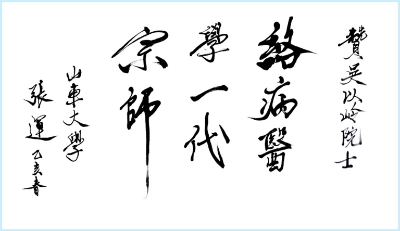 贊吴以岭院士
絡病醫
學一代
宗師
山東大學
張運乙亥春